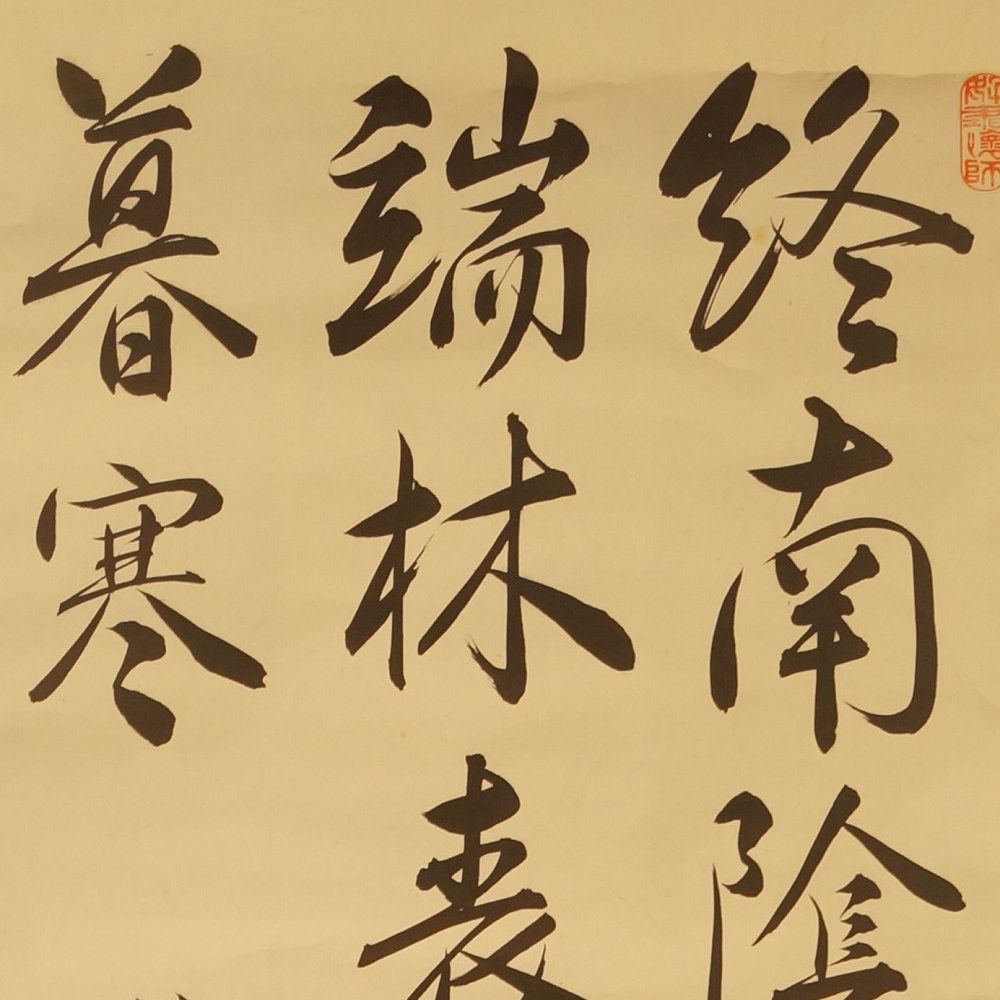 終南陰
端林表
暮寒